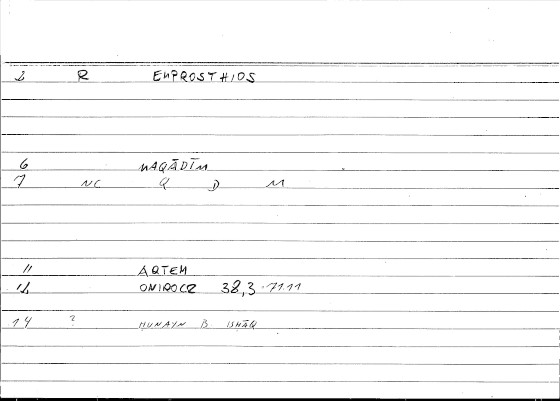 2 R EMPROSTHIOS
6 MAQĀDĪM
7 NC Q D M
11 ARTEM
12 ONIROCR 38,3 - 71.11
14 ? HUNAYN B. ISHĀQ